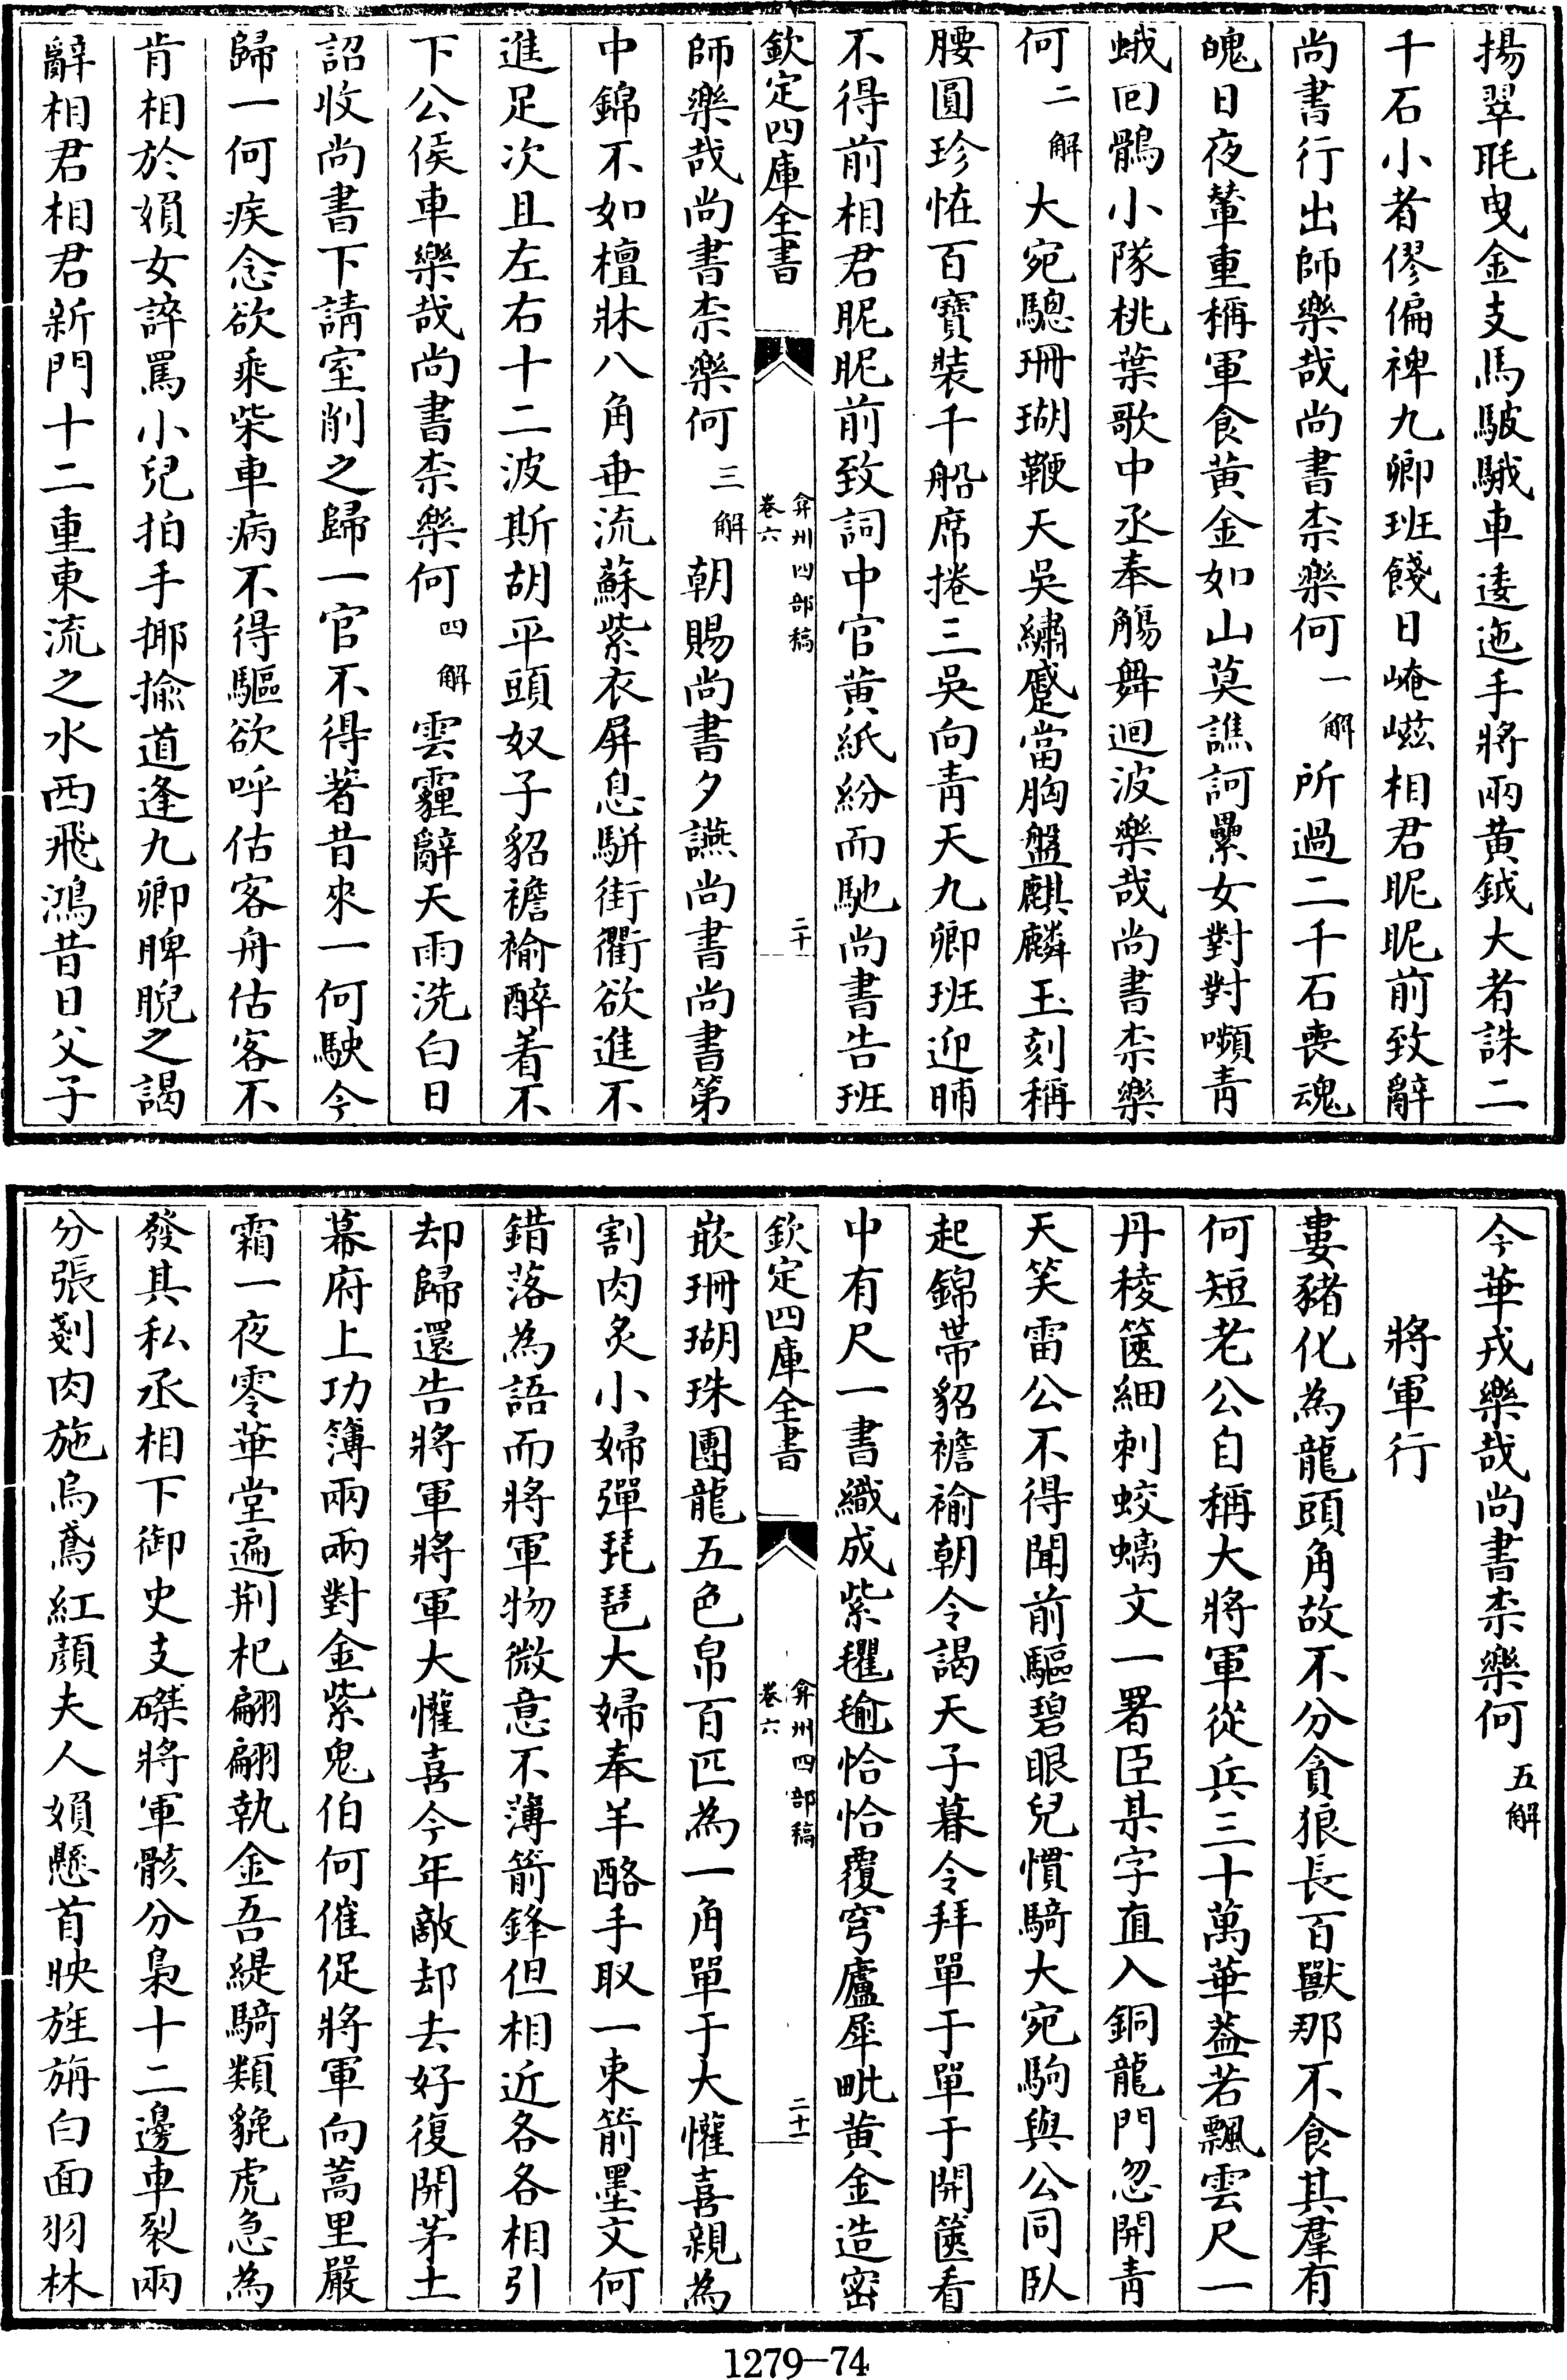 揚翠毦曳金支馬駊騀車逶迤手將兩黄鉞大者誅二
千石小者僇偏裨九卿班餞日崦嵫相君昵昵前致辭
尚書行出師樂哉尚書柰樂何一解所過二千石喪魂
魄日夜輦重稱軍食黄金如山莫譙訶纍女對對嚬青
蛾回鶻小隊桃葉歌中丞奉觴舞迴波樂哉尚書柰樂
何二解大宛驄珊瑚鞭天吳繡蹙當胸盤麒麟玉刻稱
腰圓珍恠百寶裝千船席捲三吳向青天九卿班迎晡
不得前相君昵昵前致詞中官黄紙紛而馳尚書告班
欽定四庫全書 弇州四部稿 卷六 二十
師樂哉尚書柰樂何三解朝賜尚書夕讌尚書尚書第
中錦不如檀牀八角垂流蘇紫衣屏息駢街衢欲進不
進足次且左右十二波斯胡平頭奴子貂襜褕醉着不
下公侯車樂哉尚書柰樂何四解雲霾辭天雨洗白日
詔收尚書下請室削之歸一官不得著昔來一何駛今
歸一何疾念欲乘柴車病不得驅欲呼估客舟估客不
肯相於嬃女誶罵小兒拍手揶揄道逢九卿睥睨之謁
辭相君相君新門十二重東流之水西飛鴻昔日父子
今華戎樂哉尚書柰樂何五解
將軍行
婁豬化為龍頭角故不分貪狼長百獸那不食其羣有
何短老公自稱大將軍從兵三十萬華葢若飄雲尺一
丹稜篋細刺蛟螭文一署臣某字直入銅龍門忽開青
天笑雷公不得聞前驅碧眼兒慣騎大宛駒與公同臥
起錦帶貂襜褕朝令謁天子暮令拜單于單于開篋看
中有尺一書織成紫氍毹恰恰覆穹廬犀毗黄金造密
欽定四庫全書 弇州四部稿 卷六 二十一
嵌珊瑚珠團龍五色帛百匹為一角單于大懽喜親為
割肉炙小婦彈琵琶大婦奉羊酪手取一束箭墨文何
錯落為語而將軍物微意不薄箭鋒但相近各各相引
却歸還告將軍將軍大懽喜今年敵却去好復開茅土
幕府上功簿兩兩對金紫鬼伯何催促將軍向蒿里嚴
霜一夜零華堂遍荆杞翩翩執金吾緹騎類貔虎急為
發其私丞相下御史支磔將軍骸分梟十二邊車裂兩
分張剗肉施烏鳶紅顔夫人嬃懸首映旌旃白面羽林
1279-74